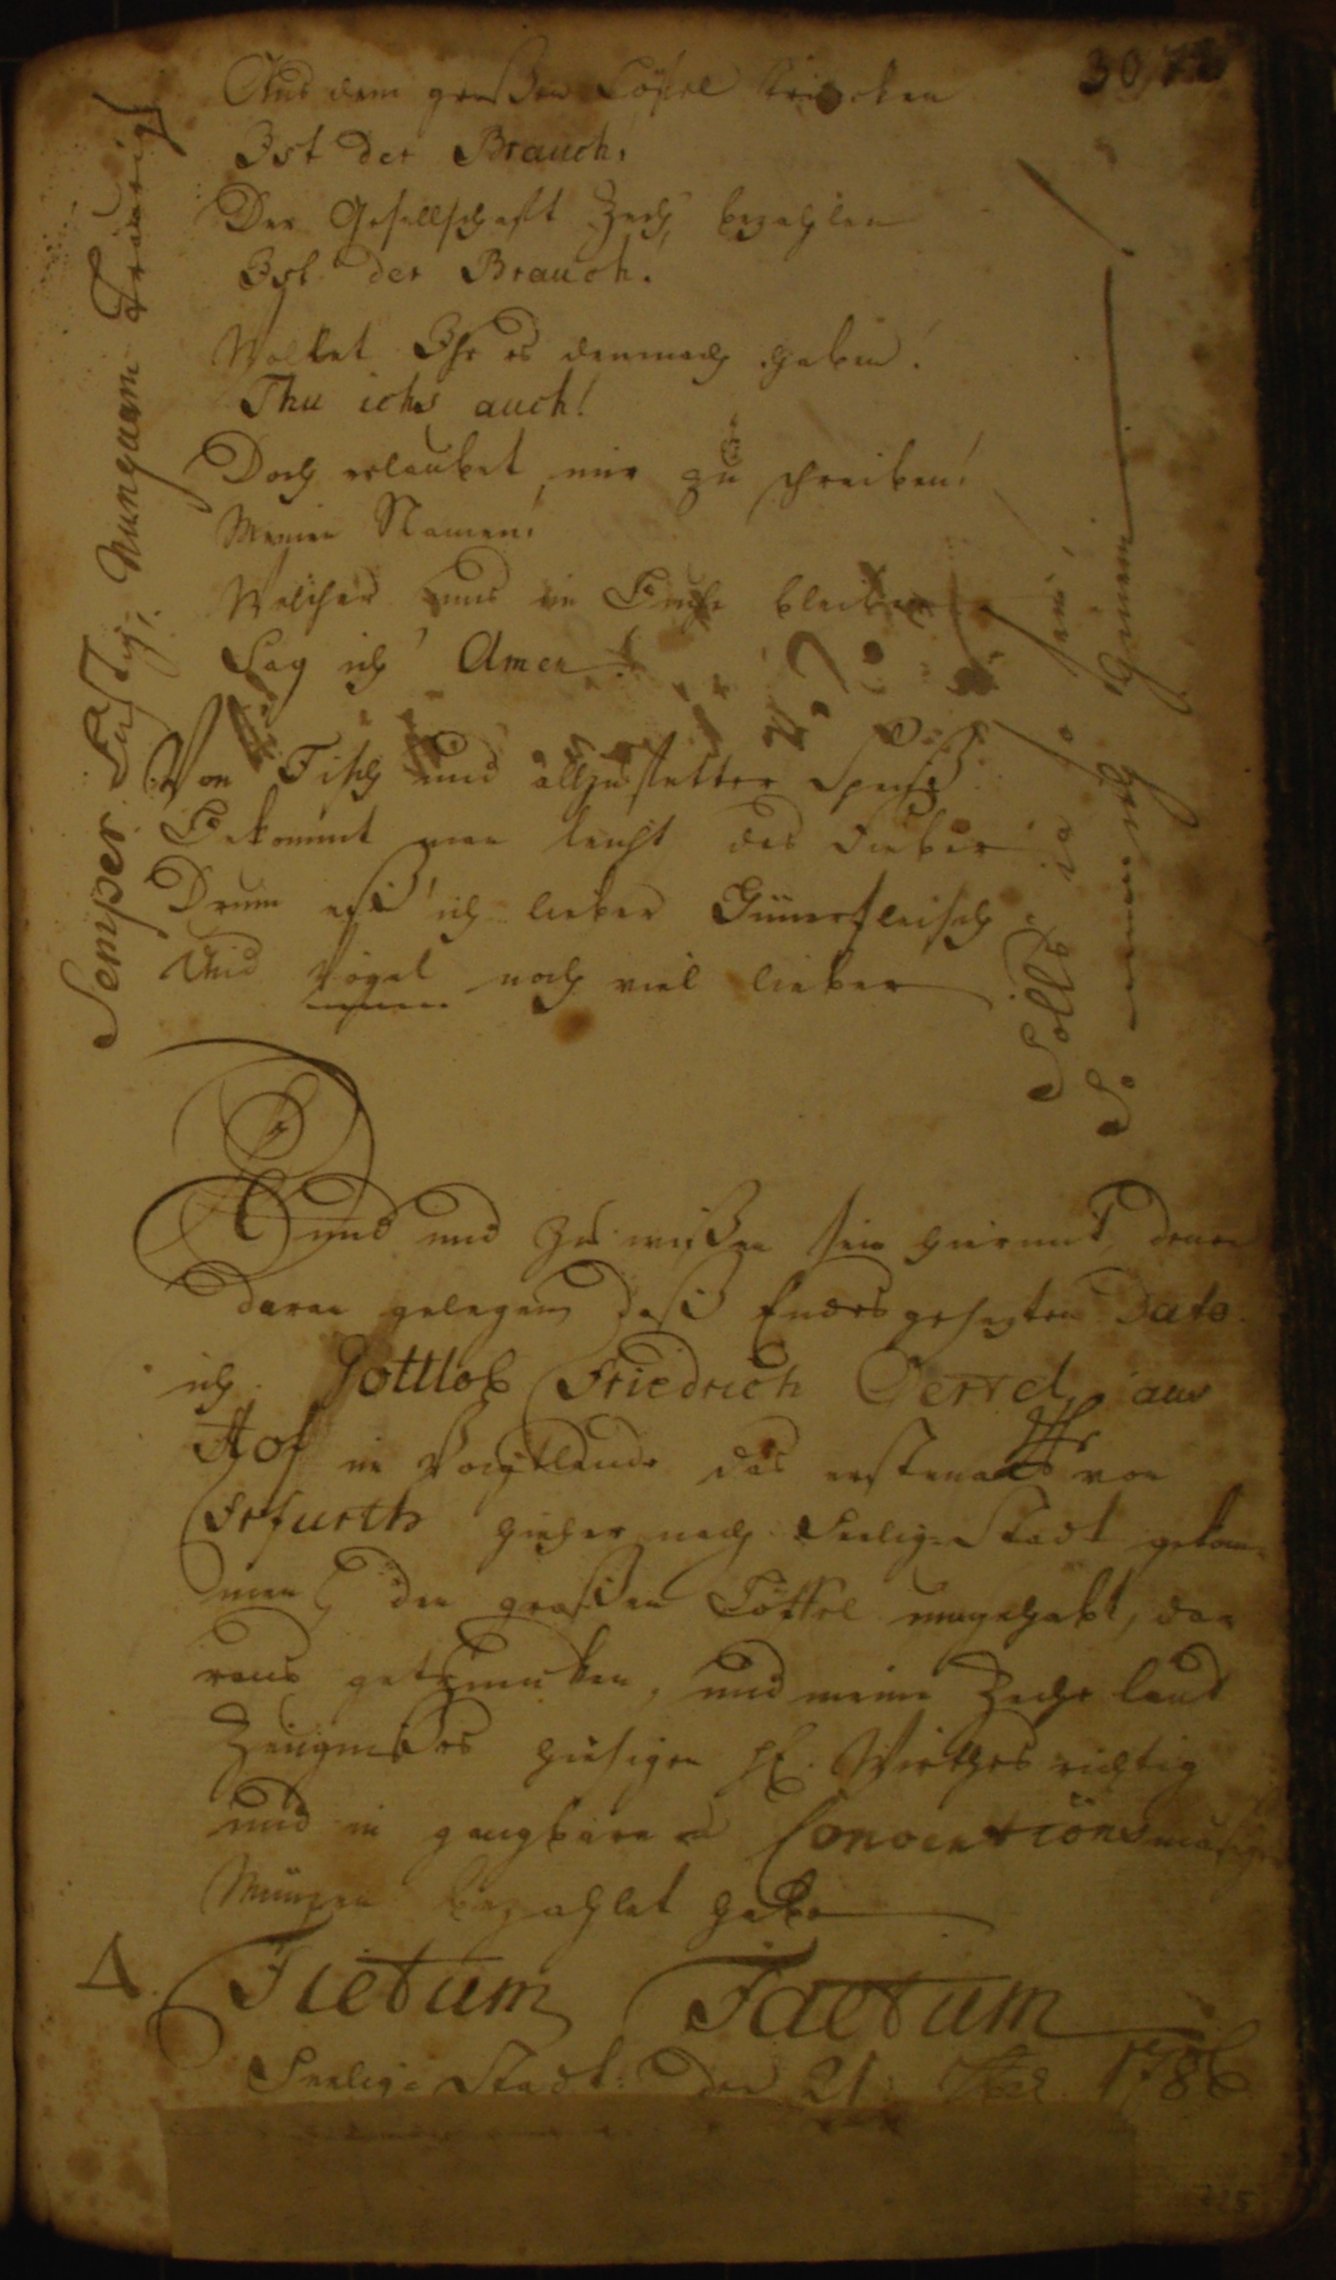 Aus dem großen Löffel trincken
Ist der Brauch,
Der Gesellschaft Zech, bezahlen
Ist der Brauch.
Wollet Ihr es demnach haben!
Thu ichs auch!
Doch erlaubet mir zu schreiben!
Meinen Namen!
Welcher uns in bleiben
Sag ich Amen
Von Fisch und allzu fetter Speiß
Bekommt man leicht das Fieber
Drum eß ich lieber Hünerfleisch
Und Vögel noch viel lieber
Semper Lustig, Nunquam Traurig
Solls ja so sein
So
Kund und zu wißen sein hiermit denen
daran gelegen, daß Endesgesezten Dato
ich Gottlob Friedrich Oertel aus
Hof im Voigtlande das erstemal von
Erfurth hieher nach Seelig-Stadt gekom-
men den großen Löffel umgehabt, da
raus getruncken, und meine Zeche laut
Zeugnißes hiesigen H. Wirthes richtig
und in gangbaren Conventionsmäsigen
Münzen bezahlet habe
Fictum Factum
Seelig-Stadt: den 21 1786